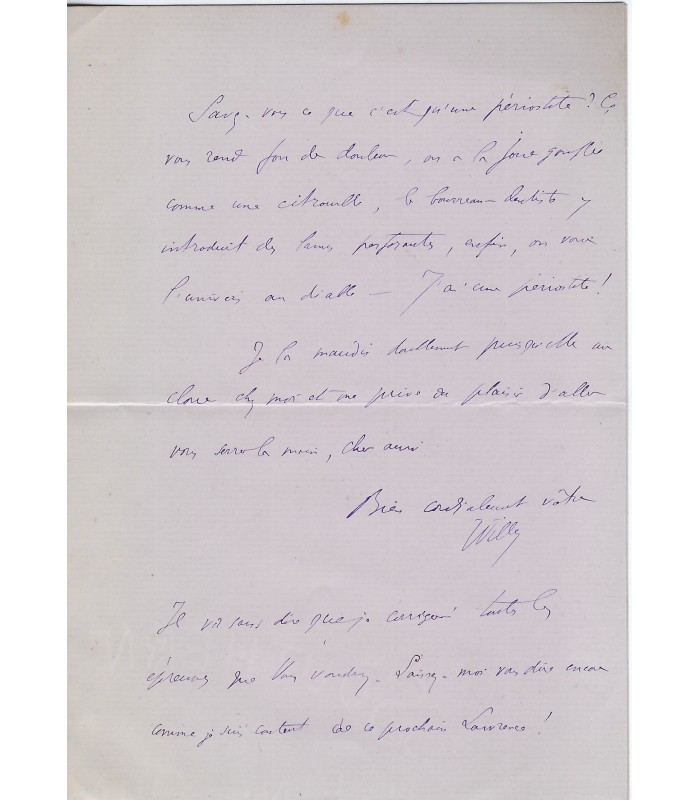 Savez-vous ce que c'est qu'une périostite? Ça
vous rend fou de douleur, on a la joue gonflée
comme une citrouille, le bourreau-dentiste y
introduit des lames perforantes, enfin, on voue
l'univers au diable — J'ai une périostite!
Je la maudis doublement puisqu'elle me
cloue chez moi et me prive du plaisir d'aller
vous serrer la main, cher ami
Bien cordialement vôtre
Willy
Il va sans dire que je corrigerai toutes les
épreuves que vous voudrez. Laissez-moi vous dire encore
comme je suis content de ce prochain Lawrence!